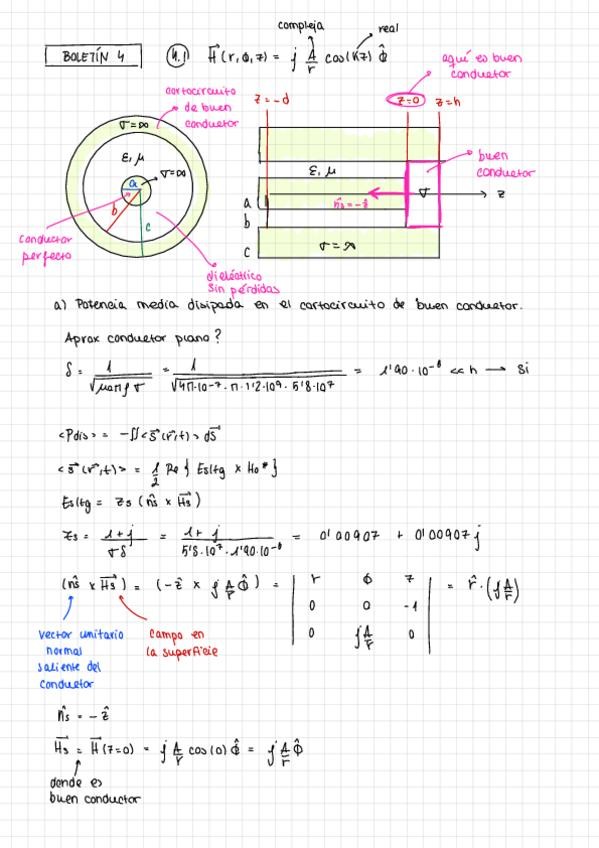 compleja
real
BOLETÍN 4
4.1 H⃗(r,ϕ,z) = j A/r cos(kz) ϕ̂
aquí es buen conductor
cortocircuito de buen conductor
z=-d
z=0
z=h
σ=∞
ε, μ
σ=∞
a
b
c
conductor perfecto
dieléctrico sin pérdidas
ε, μ
buen conductor
a
n̂s=-ẑ
σ
z
b
c
σ=∞
a) Potencia media disipada en el cortocircuito de buen conductor.
Aprox conductor plano?
δ = 1/√(μ0πfσ) = 1/√(4π·10⁻⁷·π·1'2·10⁹·5'8·10⁷) = 1'90·10⁻⁶ << h → Si
<Pdis> = -∬<S⃗(r⃗,t)> dS⃗
<S⃗(r⃗,t)> = 1/2 Re { Es|tg × Ho* }
Es|tg = Zs (n̂s × H⃗s)
Zs = (1+j)/(σδ) = (1+j)/(5'8·10⁷·1'90·10⁻⁶) = 0'00907 + 0'00907j
(n̂s × H⃗s) = (-ẑ × j A/r ϕ̂) = | r ϕ z | = r̂·(j A/r)
0 0 -1
0 j A/r 0
vector unitario normal saliente del conductor
Campo en la superficie
n̂s = -ẑ
H⃗s = H⃗(z=0) = j A/r cos(0) ϕ̂ = j A/r ϕ̂
donde es
buen conductor